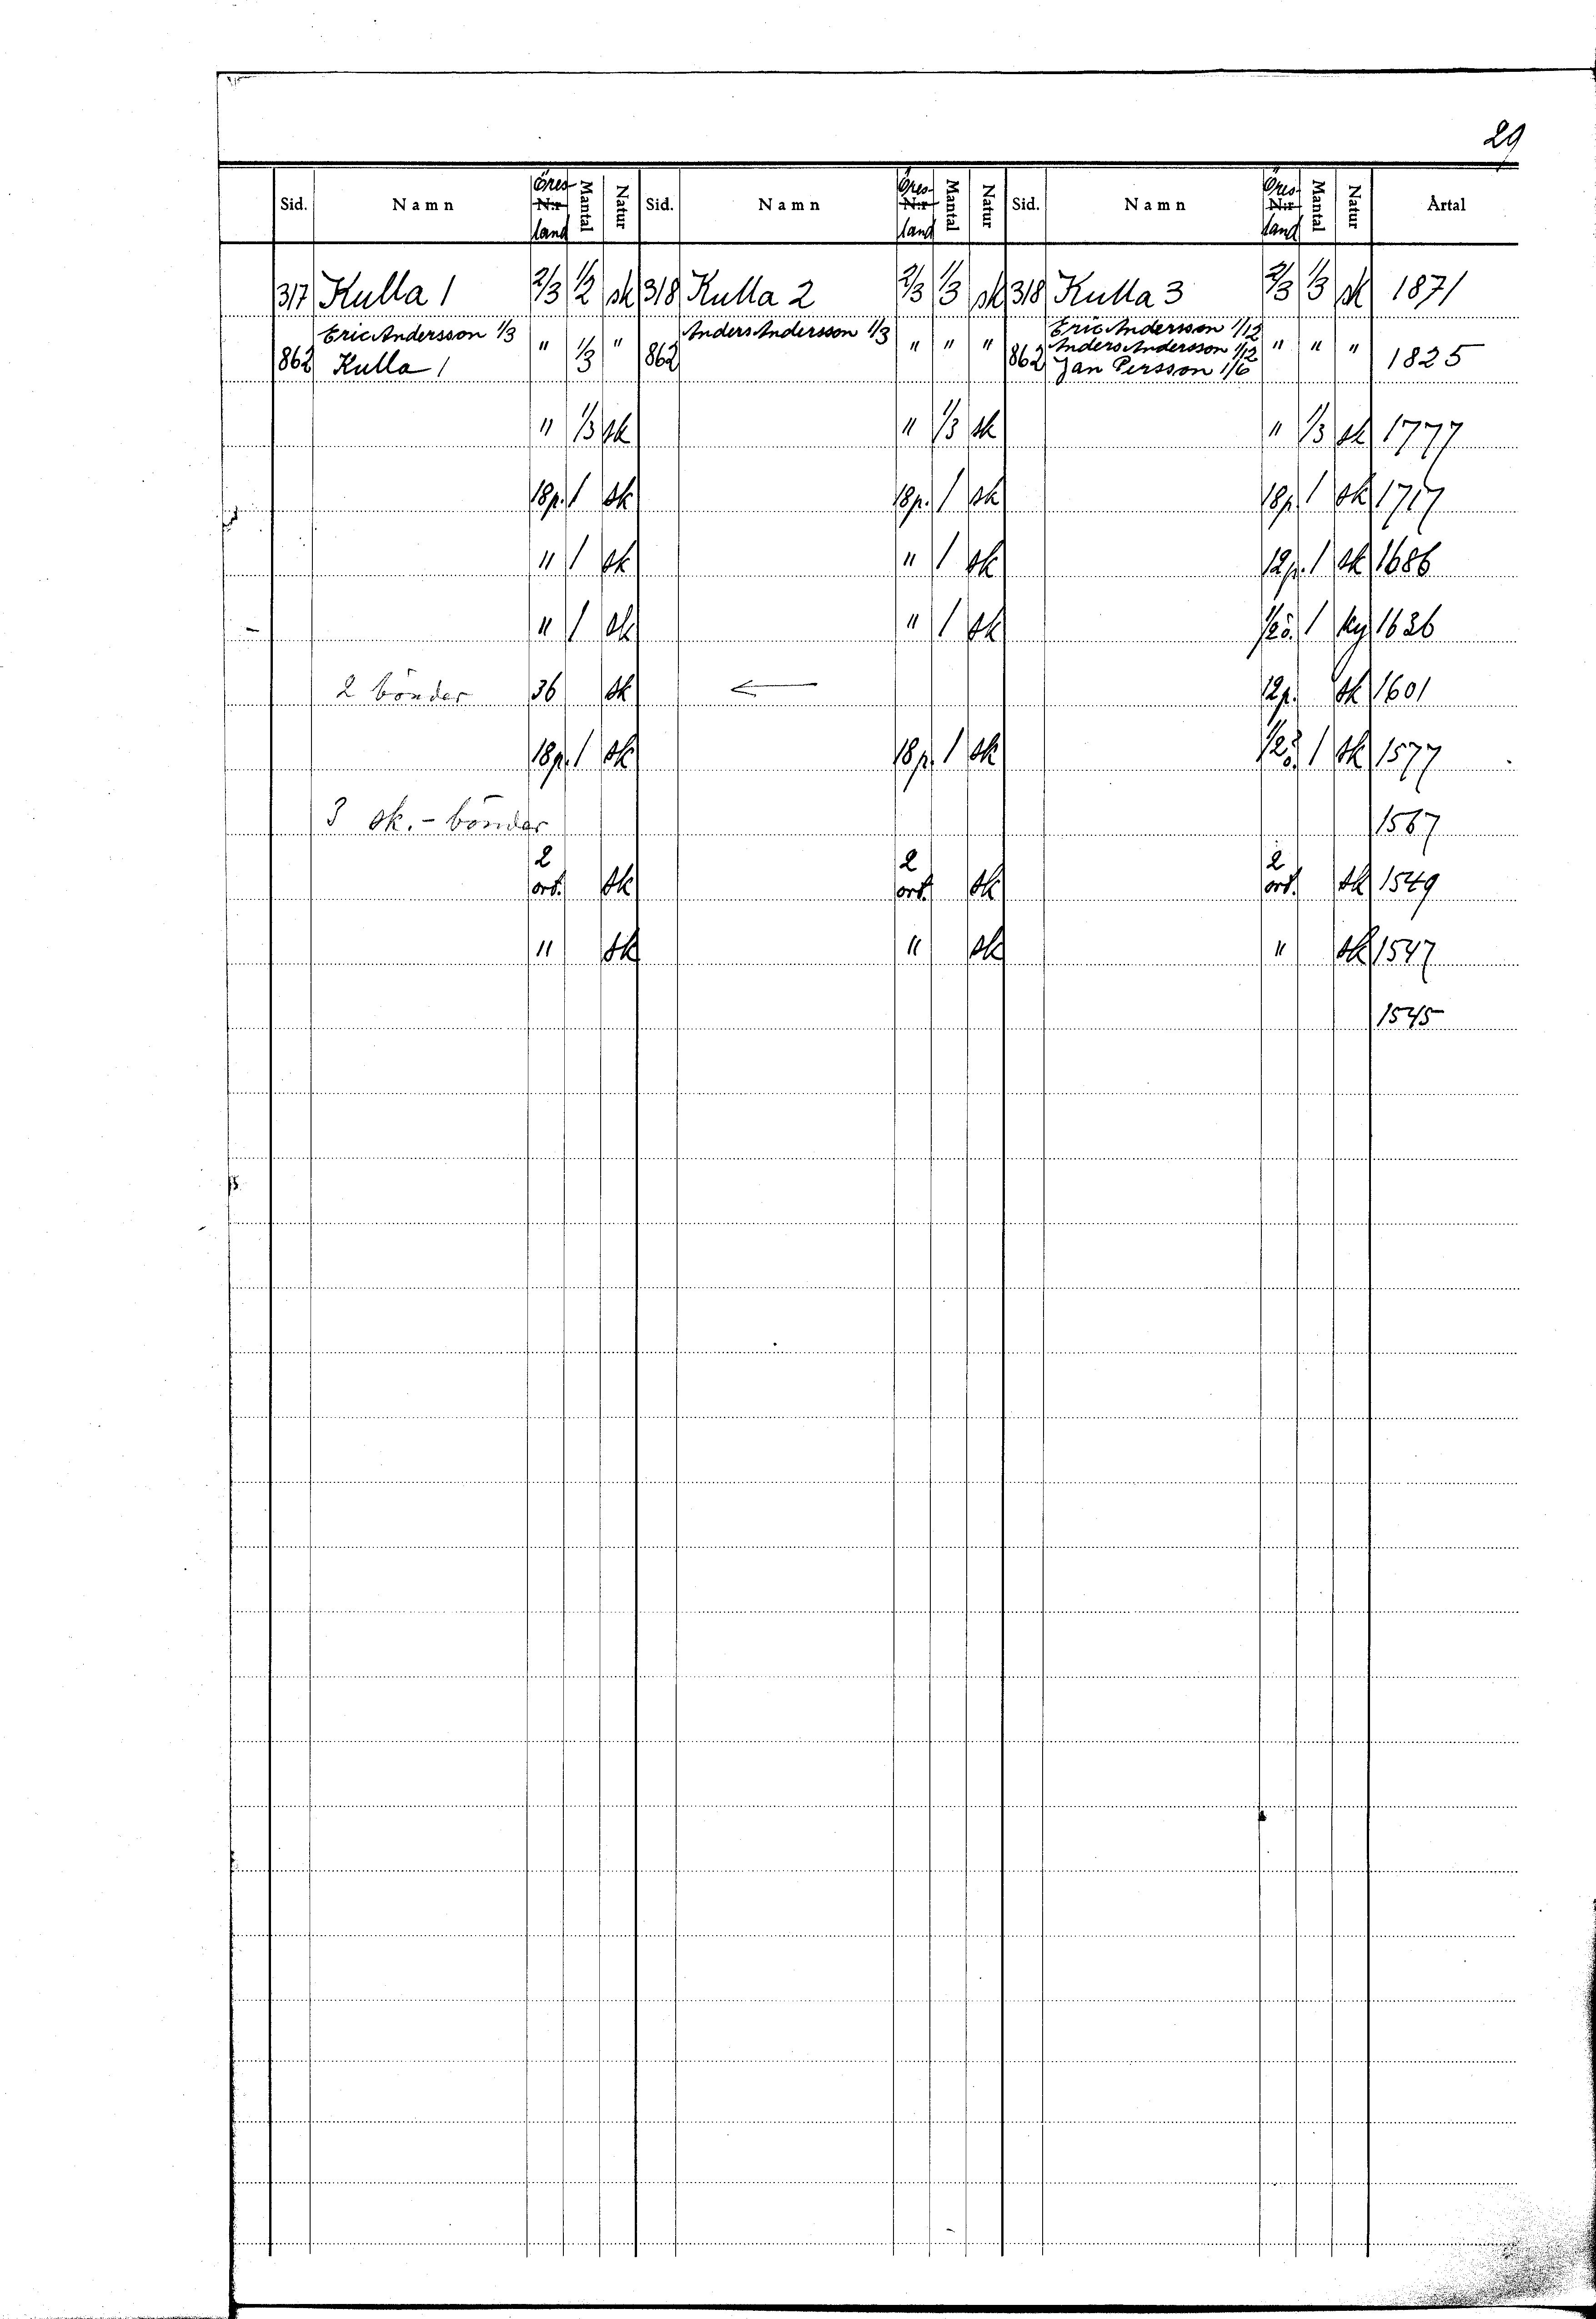 29
Sid. Namn Öres- N:r land Mantal Natur Sid. Namn Öres- N:r land Mantal Natur Sid. Namn Öres- N:r land Mantal Natur Årtal
317 Kulla 1 2/3 1/2 sk 318 Kulla 2 2/3 1/3 sk 318 Kulla 3 2/3 1/3 sk 1871
Eric Andersson 1/3 Anders Andersson 1/3 Eric Andersson 1/12
862 Kulla 1 " 1/3 " 862 " " " 862 Anders Andersson 1/12 " " " 1825
Jan Persson 1/6
" 1/3 sk " 1/3 sk " 1/3 sk 1777
18p. 1 sk 18p. 1 sk 18p. 1 sk 1717
" 1 sk " 1 sk 12p. 1 sk 1686
" 1 sk " 1 sk 1/2ö. 1 ky 1636
2 bönder 36 sk ← 12p. sk 1601
18p. 1 sk 18p. 1 sk 1/2 ö. 1 sk 1577
3 sk.-bönder 1567
2 ort. sk 2 ort. sk 2 ort. sk 1549
" sk " sk " sk 1547
1545